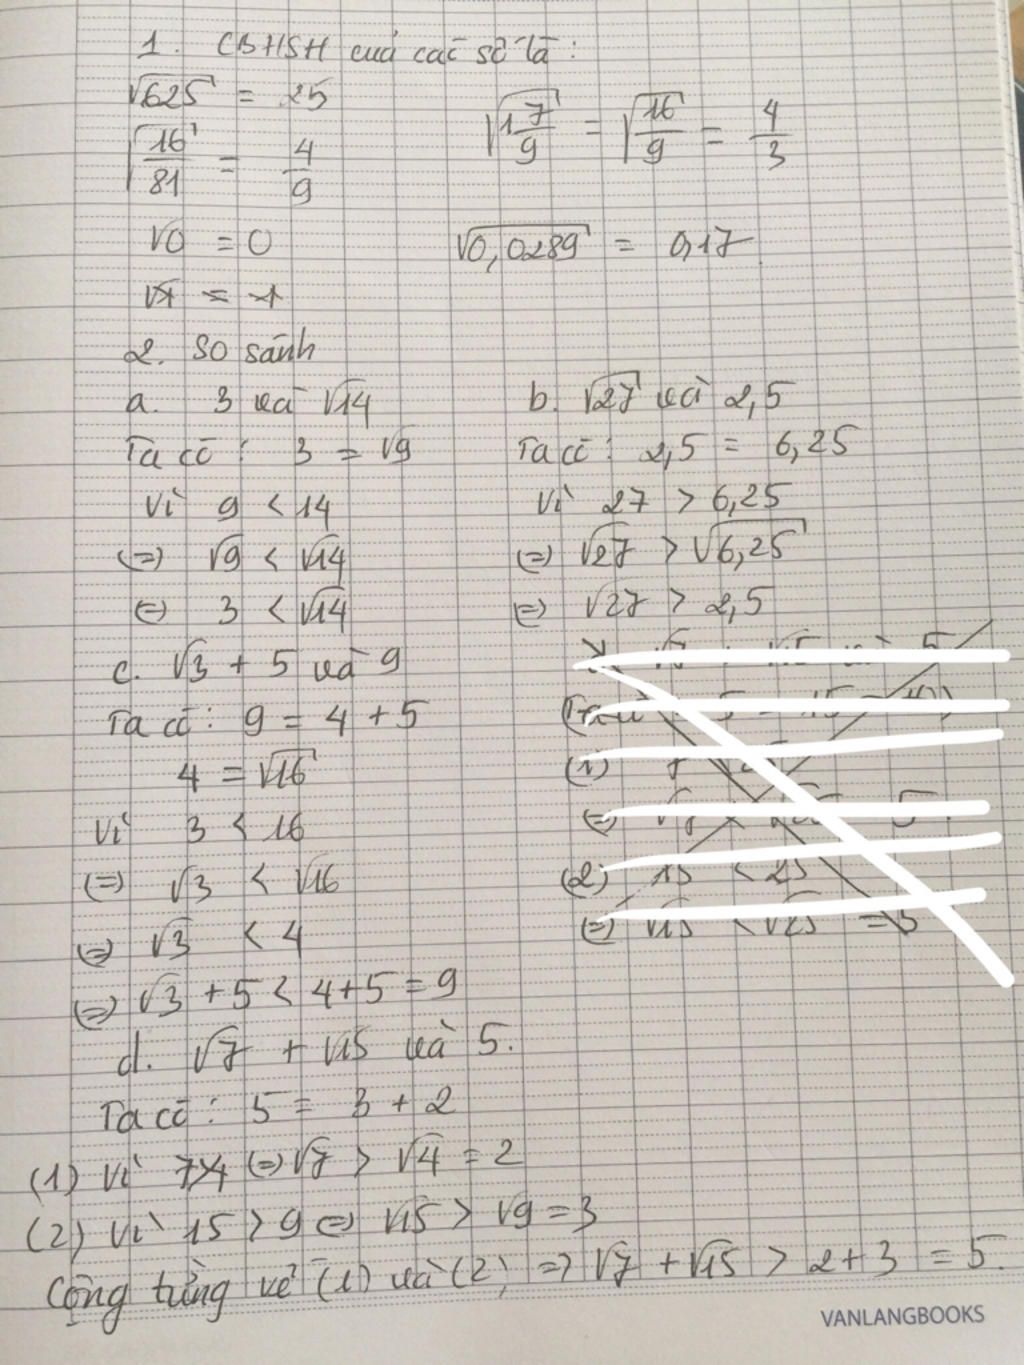 1. CBHSH cuả các số là:
√625 = 25
√(1 7/9) = √(16/9) = 4/3
√(16/81) = 4/9
√0 = 0
√0,0289 = 0,17
2. So sánh
a. 3 và √14
Ta có: 3 = √9
Vì 9 < 14
(=) √9 < √14
(=) 3 < √14
b. √27 và 2,5
Ta có: 2,5 = 6,25
Vì 27 > 6,25
(=) √27 > √6,25
(=) √27 > 2,5
c. √3 + 5 và 9
Ta có: 9 = 4 + 5
4 = √16
Vì 3 < 16
(=) √3 < √16
(=) √3 < 4
(=) √3 + 5 < 4+5 = 9
(1)
(2) 15 < 25
(=) √15 < √25 = 5
d. √7 + √15 và 5.
Ta có: 5 = 3 + 2
(1) Vì 7>4 (=) √7 > √4 = 2
(2) Vì 15 > 9 (=) √15 > √9 = 3
Cộng từng vế (1) và (2) => √7 + √15 > 2+3 = 5.
VANLANGBOOKS